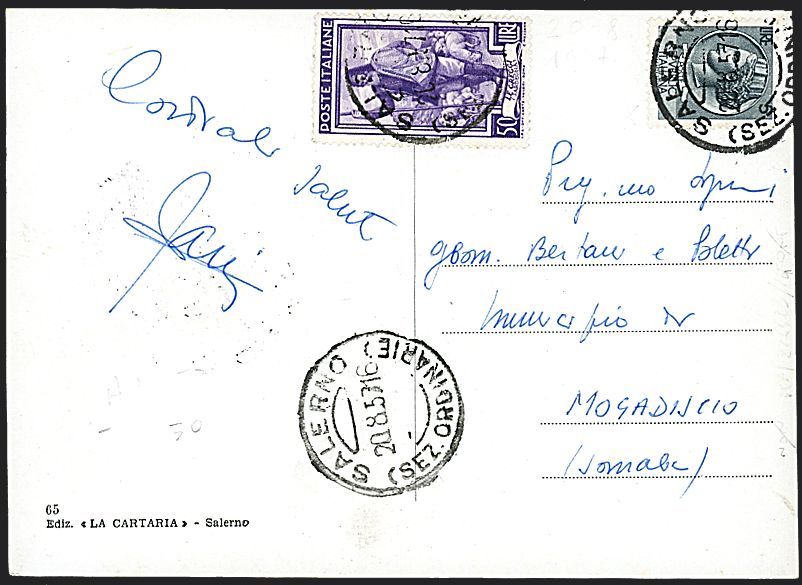 POSTE ITALIANE
LIRE
50
SALERNO (SEZ. ORDINARIE)
20.8.57 16
Cordiali
saluti
Preg.mo
geom. Bertani e Poletti
Municipio di
MOGADISCIO
(Somalia)
SALERNO (SEZ. ORDINARIE)
20.8.57 16
65
Ediz. « LA CARTARIA » - Salerno